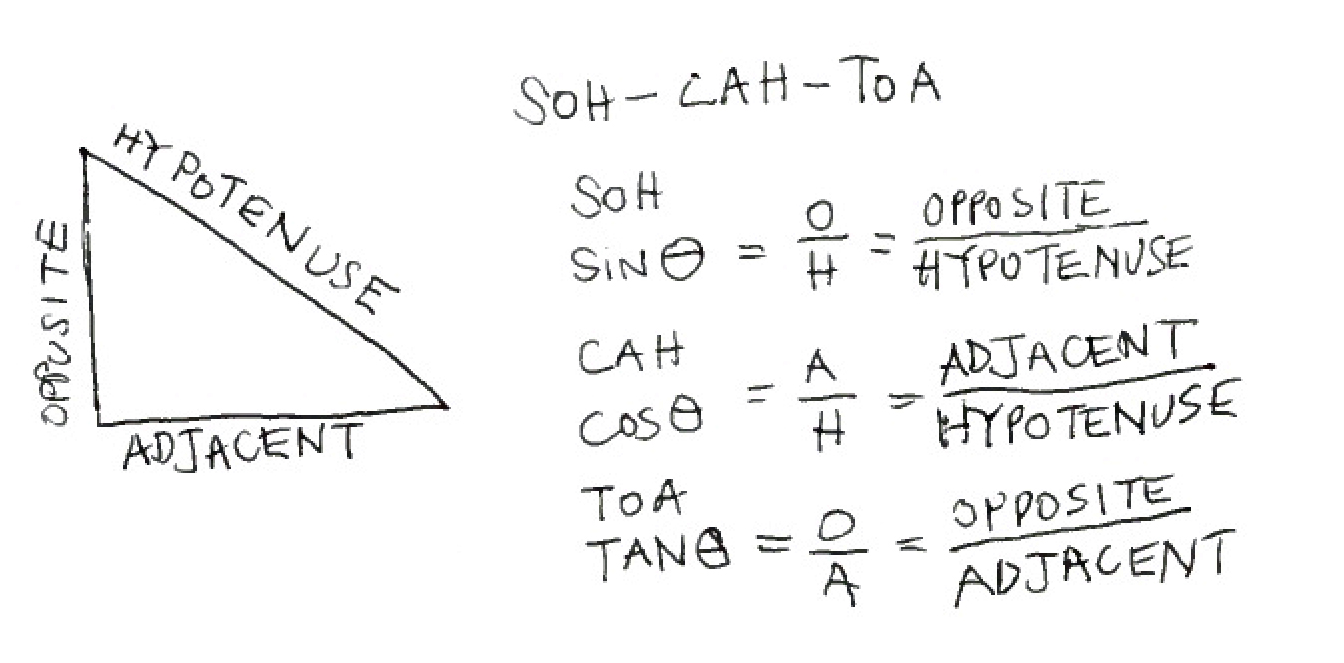 SOH - CAH - TOA
HYPOTENUSE
OPPOSITE
ADJACENT
SOH
SINθ = O/H = OPPOSITE/HYPOTENUSE
CAH
COSθ = A/H = ADJACENT/HYPOTENUSE
TOA
TANθ = O/A = OPPOSITE/ADJACENT